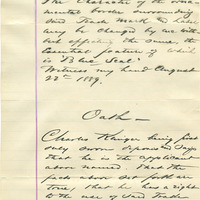 The character of the orna-
mental border surrounding
said Trade Mark or Label
may be changed by us with-
out affecting the same, the
Essential feature of which
is "Blue Seal."
Witness my hand August
22nd 1889.
Oath —
Charles Kruger being first
duly sworn deposes and says
that he is the applicant
above named. That the
facts above set forth are
true, that he has a right
to the use of said Trade